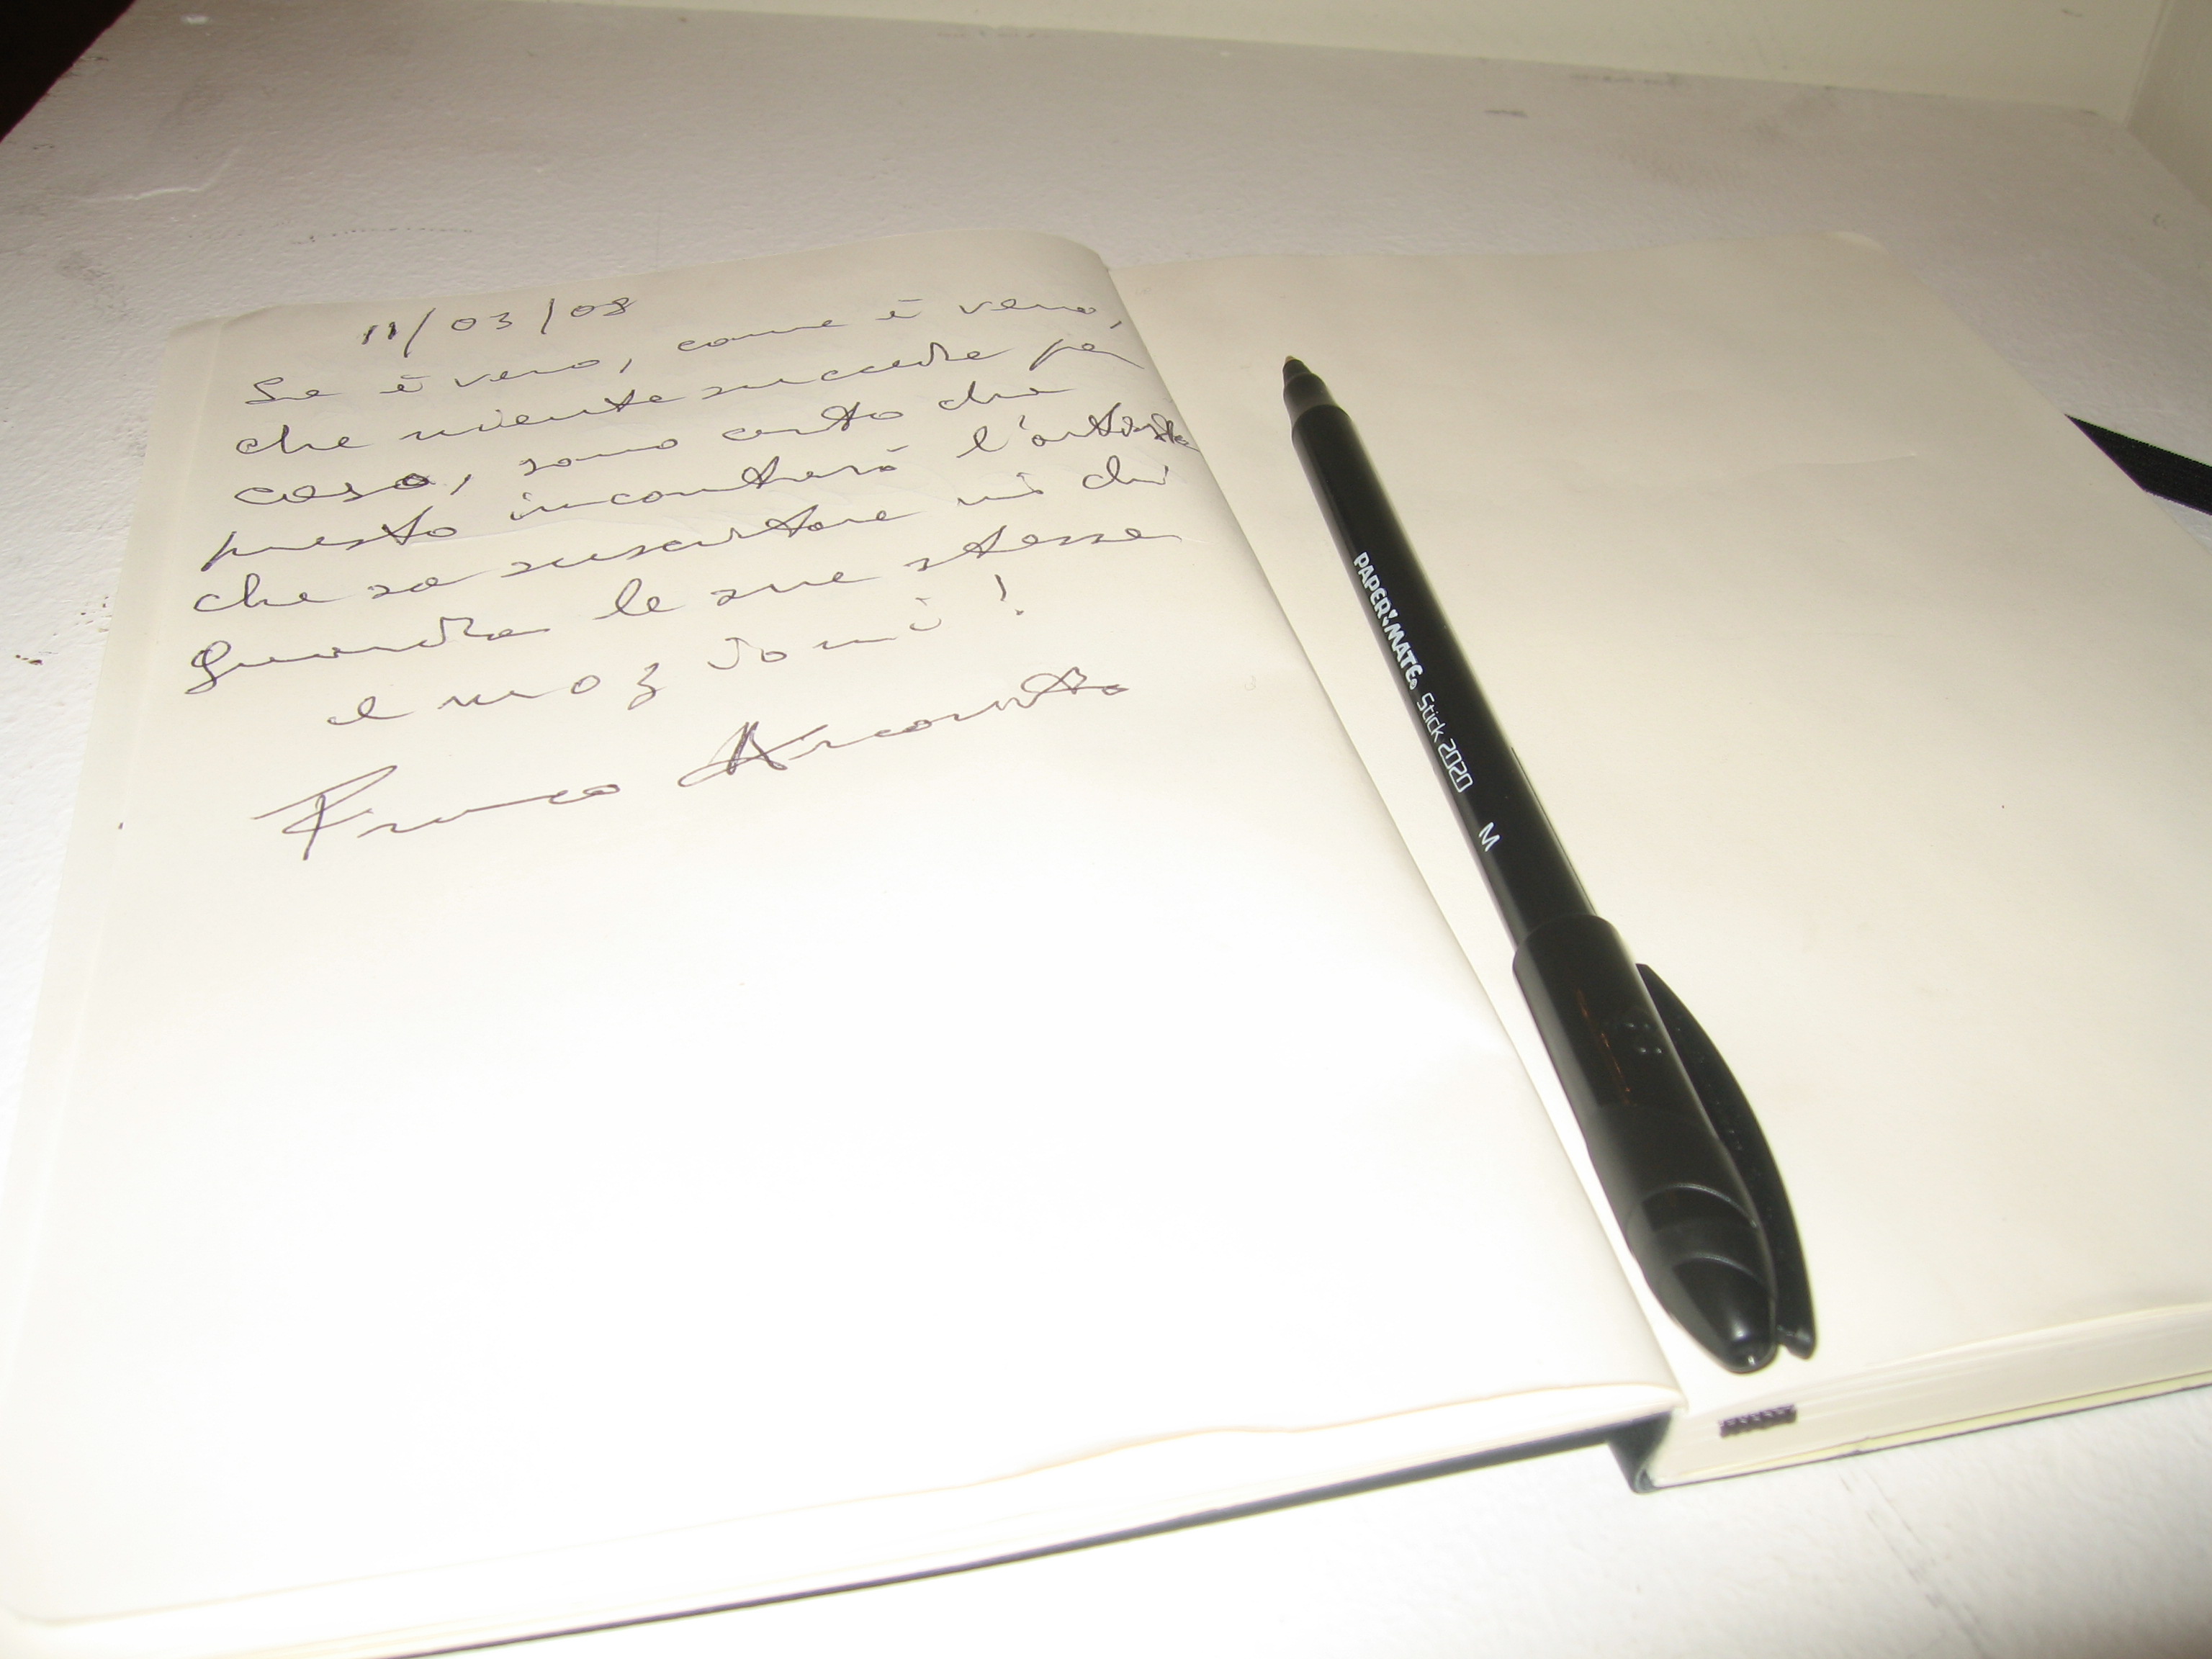 11/03/08
Se è vero, come è vero,
che niente succede per
caso, sono certo che
presto incontrerò l'artista
che sa suscitare in chi
guarda le sue stesse
emozioni!
Franco
PAPER:MATE. Stick 2020 M